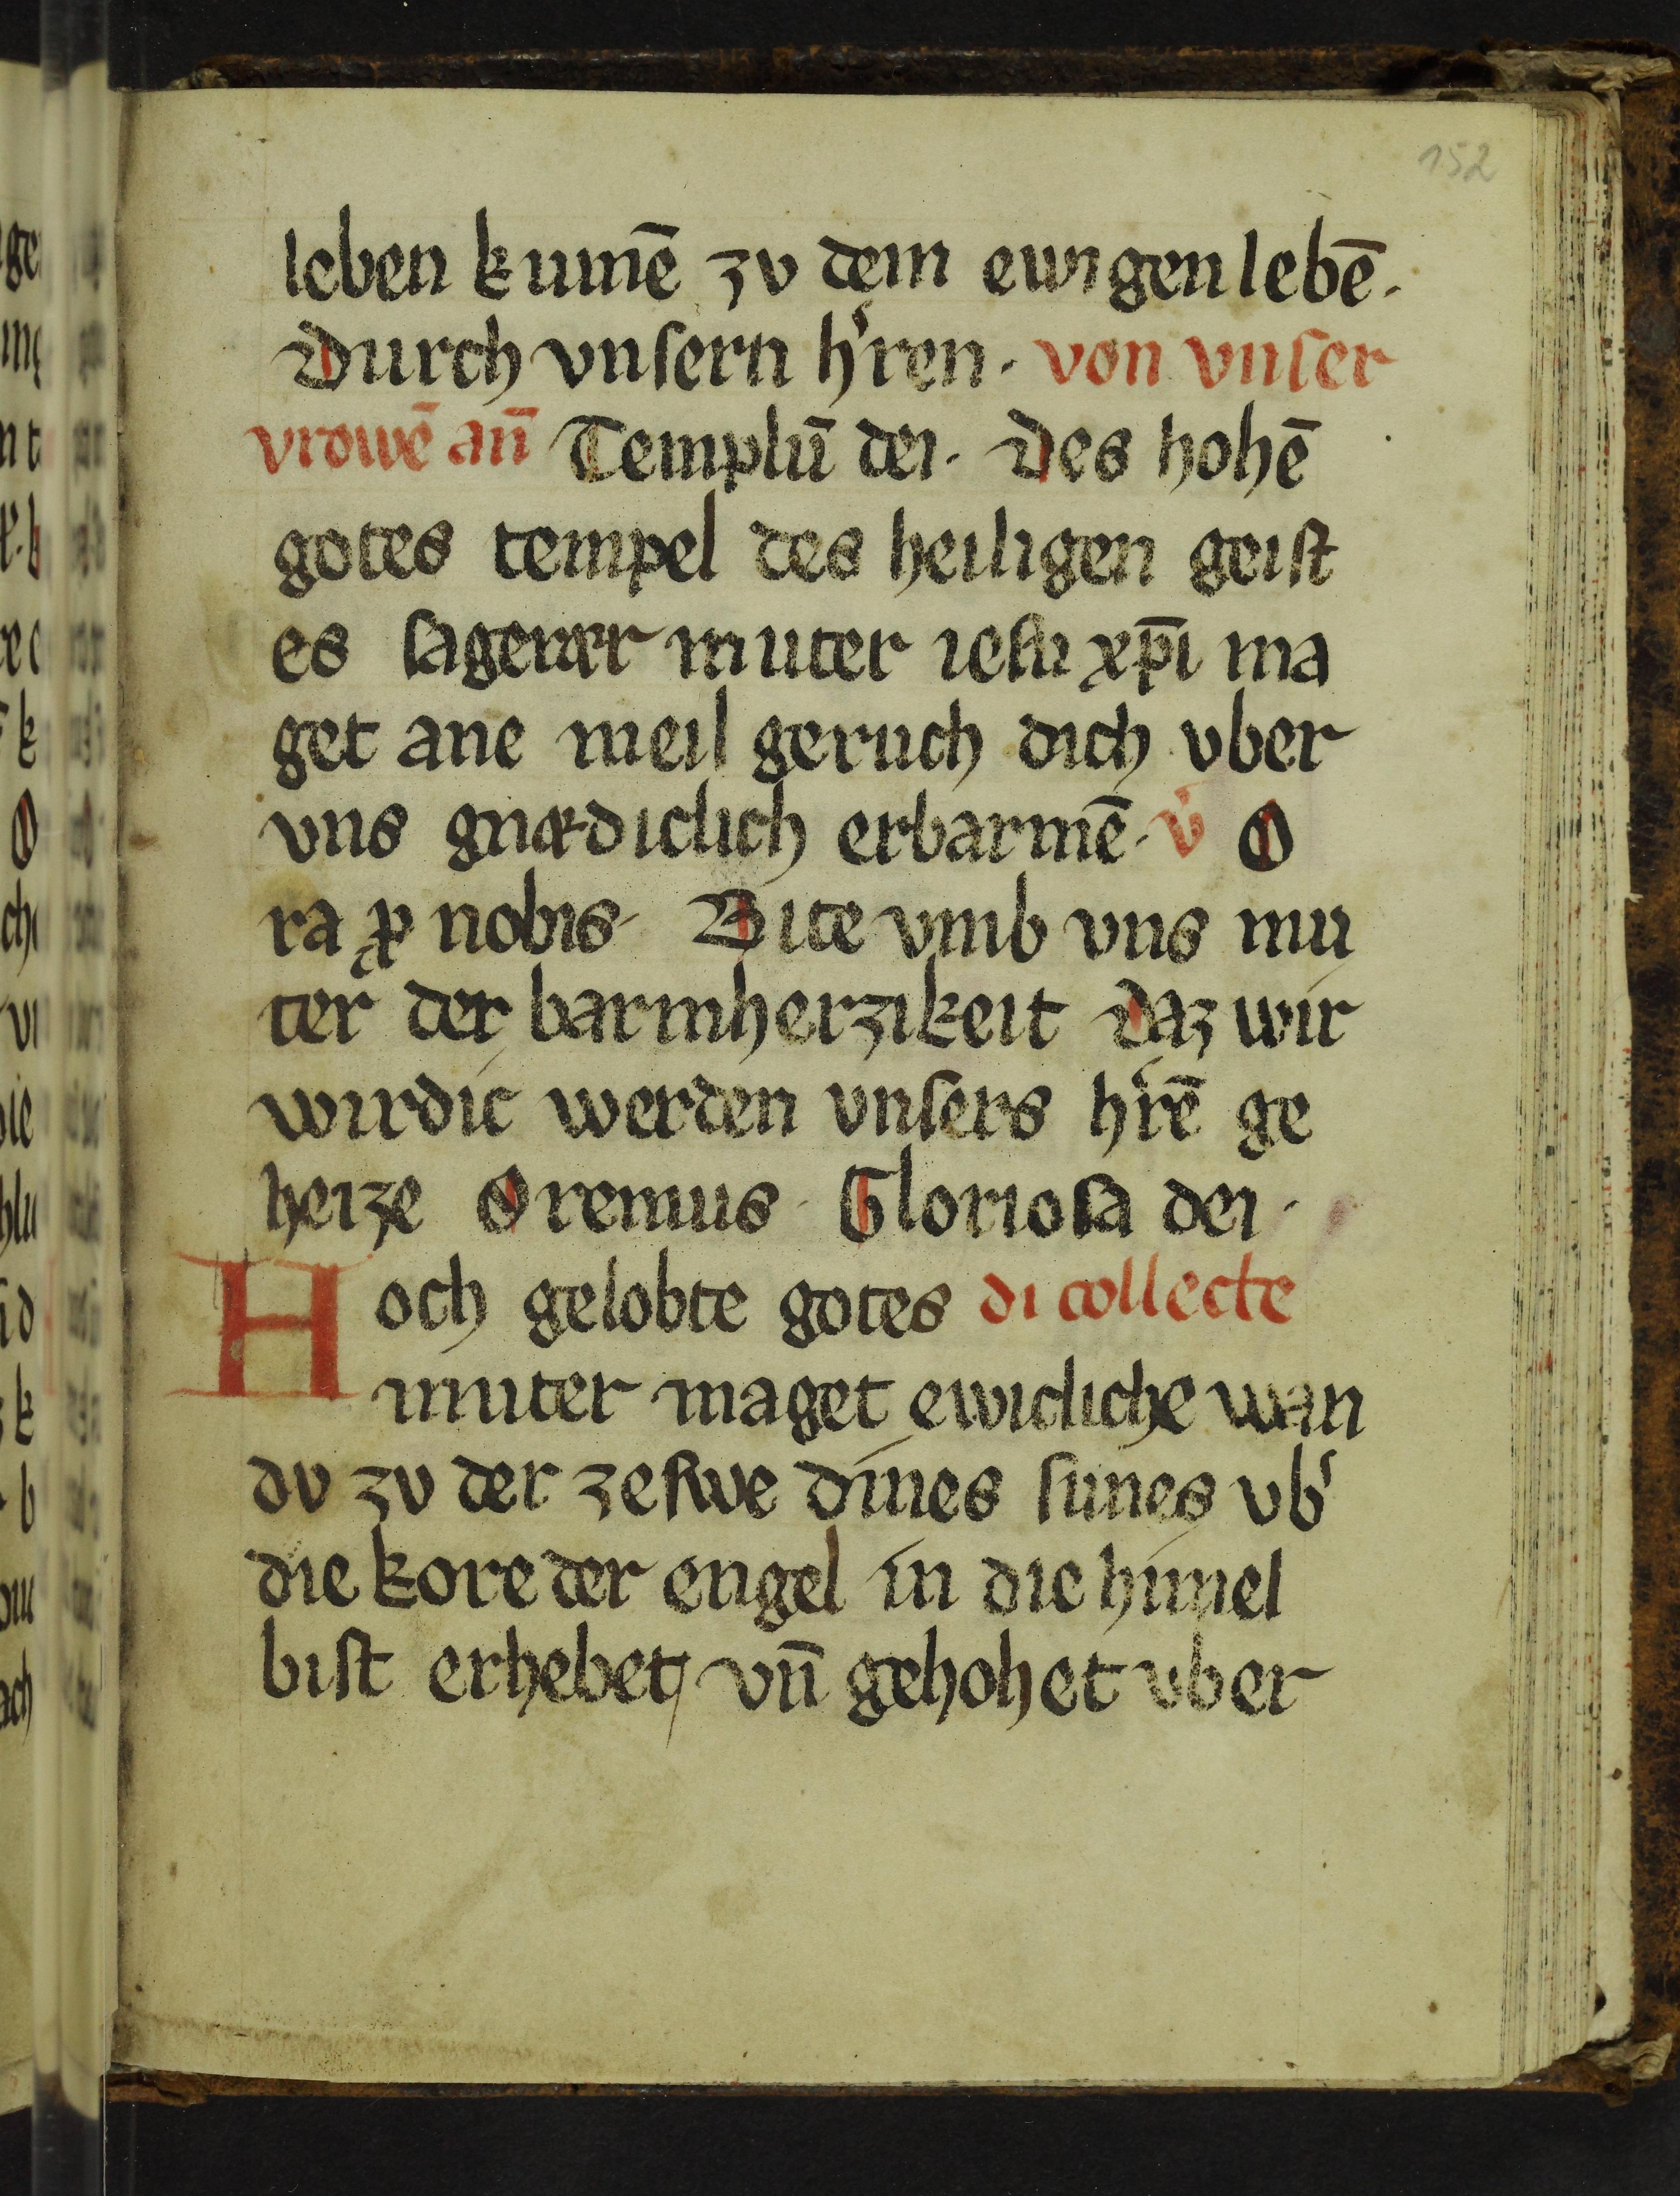 152
leben kumē zv dem ewigen lebē.
Durch vnsern h᷑ren. von vnser
vrowē an̄ Templū dei. Des hohē
gotes tempel des heiligen geist
es sagerær muter iesu xp̄i ma
get ane meil geruch dich vber
vns gnædiclich erbarmē. v᷑ O
ra ꝓ nobis. Bite vmb vns mu
ter der barmherzikeit Daz wir
wirdic werden vnsers h᷑rē ge
heize Oremus. Gloriosa dei.
Hoch gelobte gotes di collecte
muter maget ewicliche wan
dv zv der zeswe dines sunes vb᷑
die kore der engel in die himel
bist erhebet, vn̄ gehohet vber